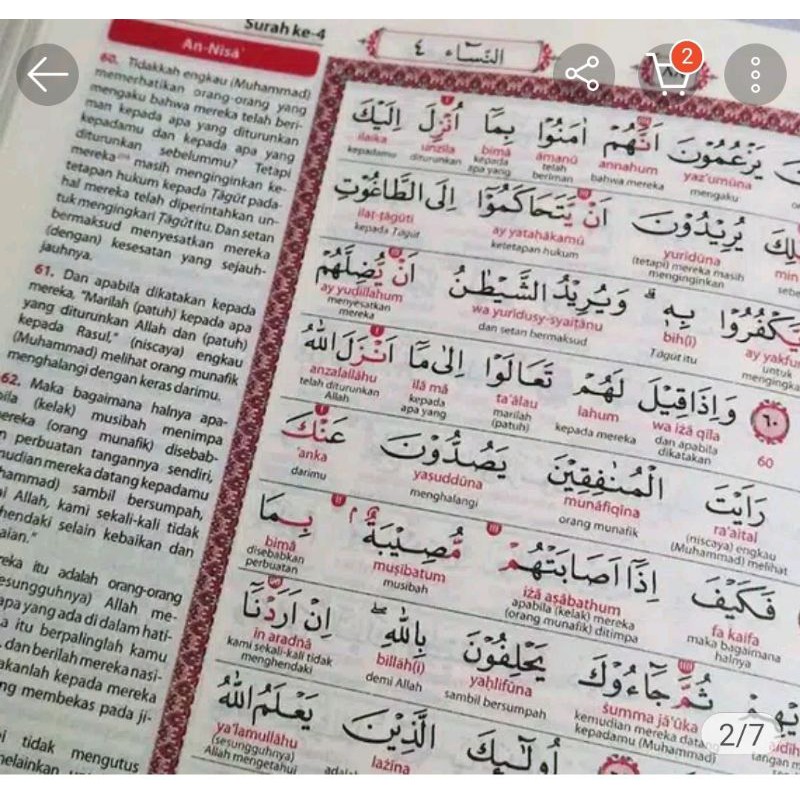 Surah ke-4
An-Nisā'
60. Tidakkah engkau (Muhammad)
memerhatikan orang-orang yang
mengaku bahwa mereka telah beri-
man kepada apa yang diturunkan
kepadamu dan kepada apa yang
diturunkan sebelummu? Tetapi
mereka masih menginginkan ke-
tetapan hukum kepada Ṭāgūt pada-
hal mereka telah diperintahkan un-
tuk mengingkari Ṭāgūt itu. Dan setan
bermaksud menyesatkan mereka
(dengan) kesesatan yang sejauh-
jauhnya.
61. Dan apabila dikatakan kepada
mereka, "Marilah (patuh) kepada apa
yang diturunkan Allah dan (patuh)
kepada Rasul," (niscaya) engkau
(Muhammad) melihat orang munafik
menghalangi dengan keras darimu.
62. Maka bagaimana halnya apa-
bila (kelak) musibah menimpa
mereka (orang munafik) disebab-
perbuatan tangannya sendiri,
mudian mereka datang kepadamu
hammad) sambil bersumpah,
Allah, kami sekali-kali tidak
hendaki selain kebaikan dan
aian."
reka itu adalah orang-orang
esungguhnya) Allah me-
apa yang ada di dalam hati-
a itu berpalinglah kamu
dan berilah mereka nasi-
akanlah kepada mereka
ng membekas pada ji-
tidak mengutus
melainkan
النساء ٤
2
يَزْعُمُوْنَ اَنَّهُمْ اٰمَنُوْا بِمَآ اُنْزِلَ اِلَيْكَ
yaz'umūna annahum āmanū bimā unzila ilaika
mengaku bahwa mereka telah beriman kepada apa yang diturunkan kepadamu
يُرِيْدُوْنَ اَنْ يَّتَحَاكَمُوْٓا اِلَى الطَّاغُوْتِ
yurīdūna ay yatahākamū ilaṭ-ṭāgūti
(tetapi) mereka masih menginginkan ketetapan hukum kepada Ṭāgūt
يَّكْفُرُوْا بِهٖ وَيُرِيْدُ الشَّيْطٰنُ اَنْ يُّضِلَّهُمْ
ay yakfu bih(ī) wa yurīdusy-syaiṭānu ay yuḍillahum
untuk mengingka Ṭāgūt itu dan setan bermaksud menyesatkan mereka
٦٠ وَاِذَا قِيْلَ لَهُمْ تَعَالَوْا اِلٰى مَآ اَنْزَلَ اللّٰهُ
60 wa iżā qīla lahum ta'ālau ilā mā anzalallāhu
dan apabila dikatakan kepada mereka marilah (patuh) kepada apa yang telah diturunkan Allah
رَاَيْتَ الْمُنٰفِقِيْنَ يَصُدُّوْنَ عَنْكَ
ra'aital munāfiqīna yaṣuddūna 'anka
(niscaya) engkau (Muhammad) melihat orang munafik menghalangi darimu
فَكَيْفَ اِذَآ اَصَابَتْهُمْ مُّصِيْبَةٌ بِمَا
fa kaifa iżā aṣābathum muṣībatum bimā
maka bagaimana halnya apabila (kelak) mereka (orang munafik) ditimpa musibah disebabkan perbuatan
ثُمَّ جَاۤءُوْكَ يَحْلِفُوْنَ بِاللّٰهِ اِنْ اَرَدْنَآ
ṡumma jā'ūka yaḥlifūna billāh(i) in aradnā
kemudian mereka datang kepadamu (Muhammad) sambil bersumpah demi Allah kami sekali-kali tidak menghendaki
اُولٰۤىِٕكَ الَّذِيْنَ يَعْلَمُ اللّٰهُ
lażīna ya'lamullāhu
(sesungguhnya) Allah mengetahui
2/7